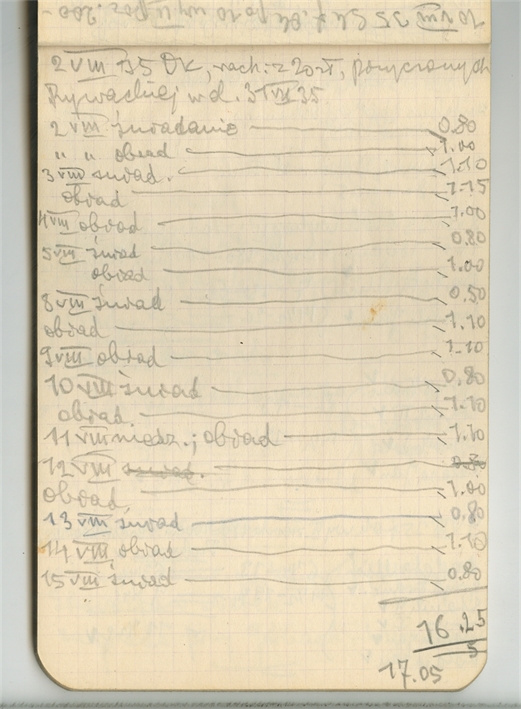 10 VIII 35
2 VIII 35 OK, rach. z 20 zł, pożyczonych
w d. 31 VII 35
2 VIII śniadanie 0.80
" " obiad 1.00
3 VIII śniad. 1.10
obiad 1.15
4 VIII obiad 1.00
5 VIII śniad 0.80
obiad 1.00
8 VIII śniad 0.50
obiad 1.10
9 VIII obiad 1.10
10 VIII śniad 0.80
obiad. 1.10
11 VIII niedz.; obiad 1.10
12 VIII śniad.
obiad, 1.00
13 VIII śniad 0.80
14 VIII obiad 1.10
15 VIII śniad 0.80
16.25
5
17.05